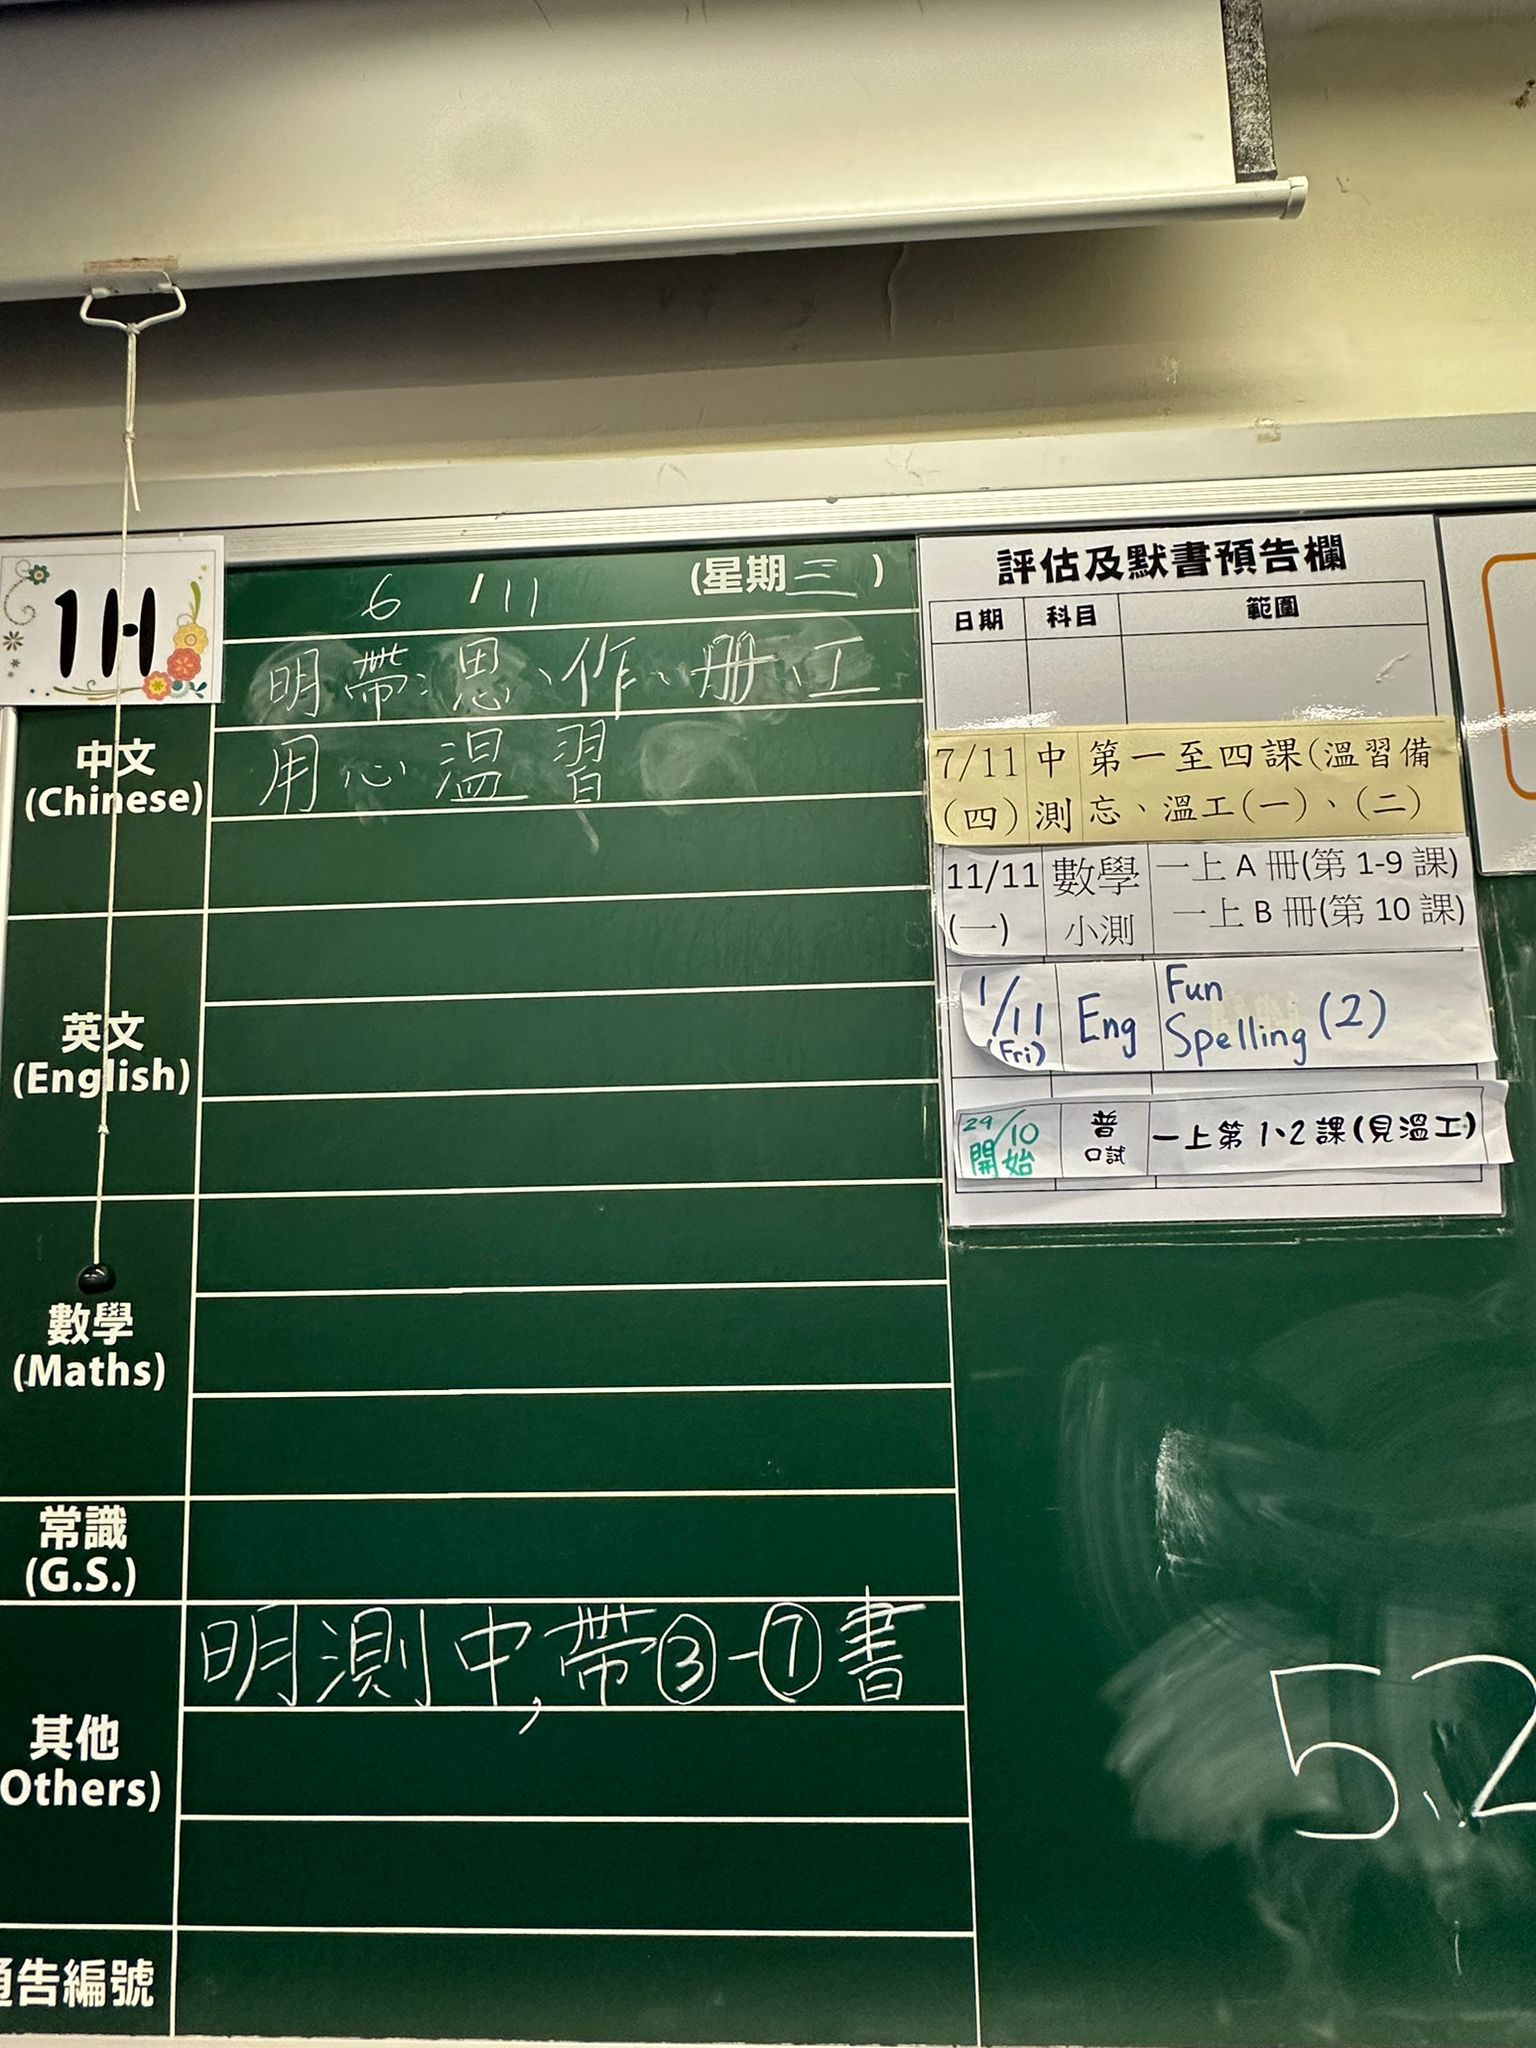 1H
6/11 (星期三)
明帶:思、作、册、工
用心溫習
中文
(Chinese)
英文
(English)
數學
(Maths)
常識
(G.S.)
明測中,帶③-⑦書
其他
Others)
通告編號
評估及默書預告欄
日期 科目 範圍
7/11 中 第一至四課(溫習備
(四) 測 忘、溫工(一)、(二)
11/11 數學 一上 A 冊(第 1-9 課)
(一) 小測 一上 B 冊(第 10 課)
1/11 Eng Fun
(Fri) Spelling (2)
29/10 普 一上第1、2課(見溫工)
開始 口試
5.2